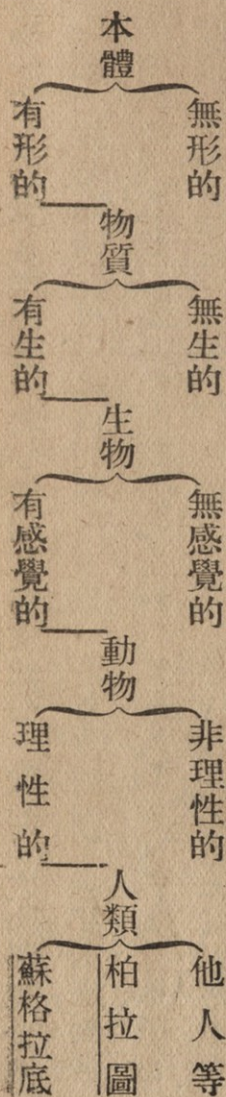 本體
無形的
有形的
物質
無生的
有生的
生物
無感覺的
有感覺的
動物
非理性的
理性的
人類
他人等
柏拉圖
蘇格拉底